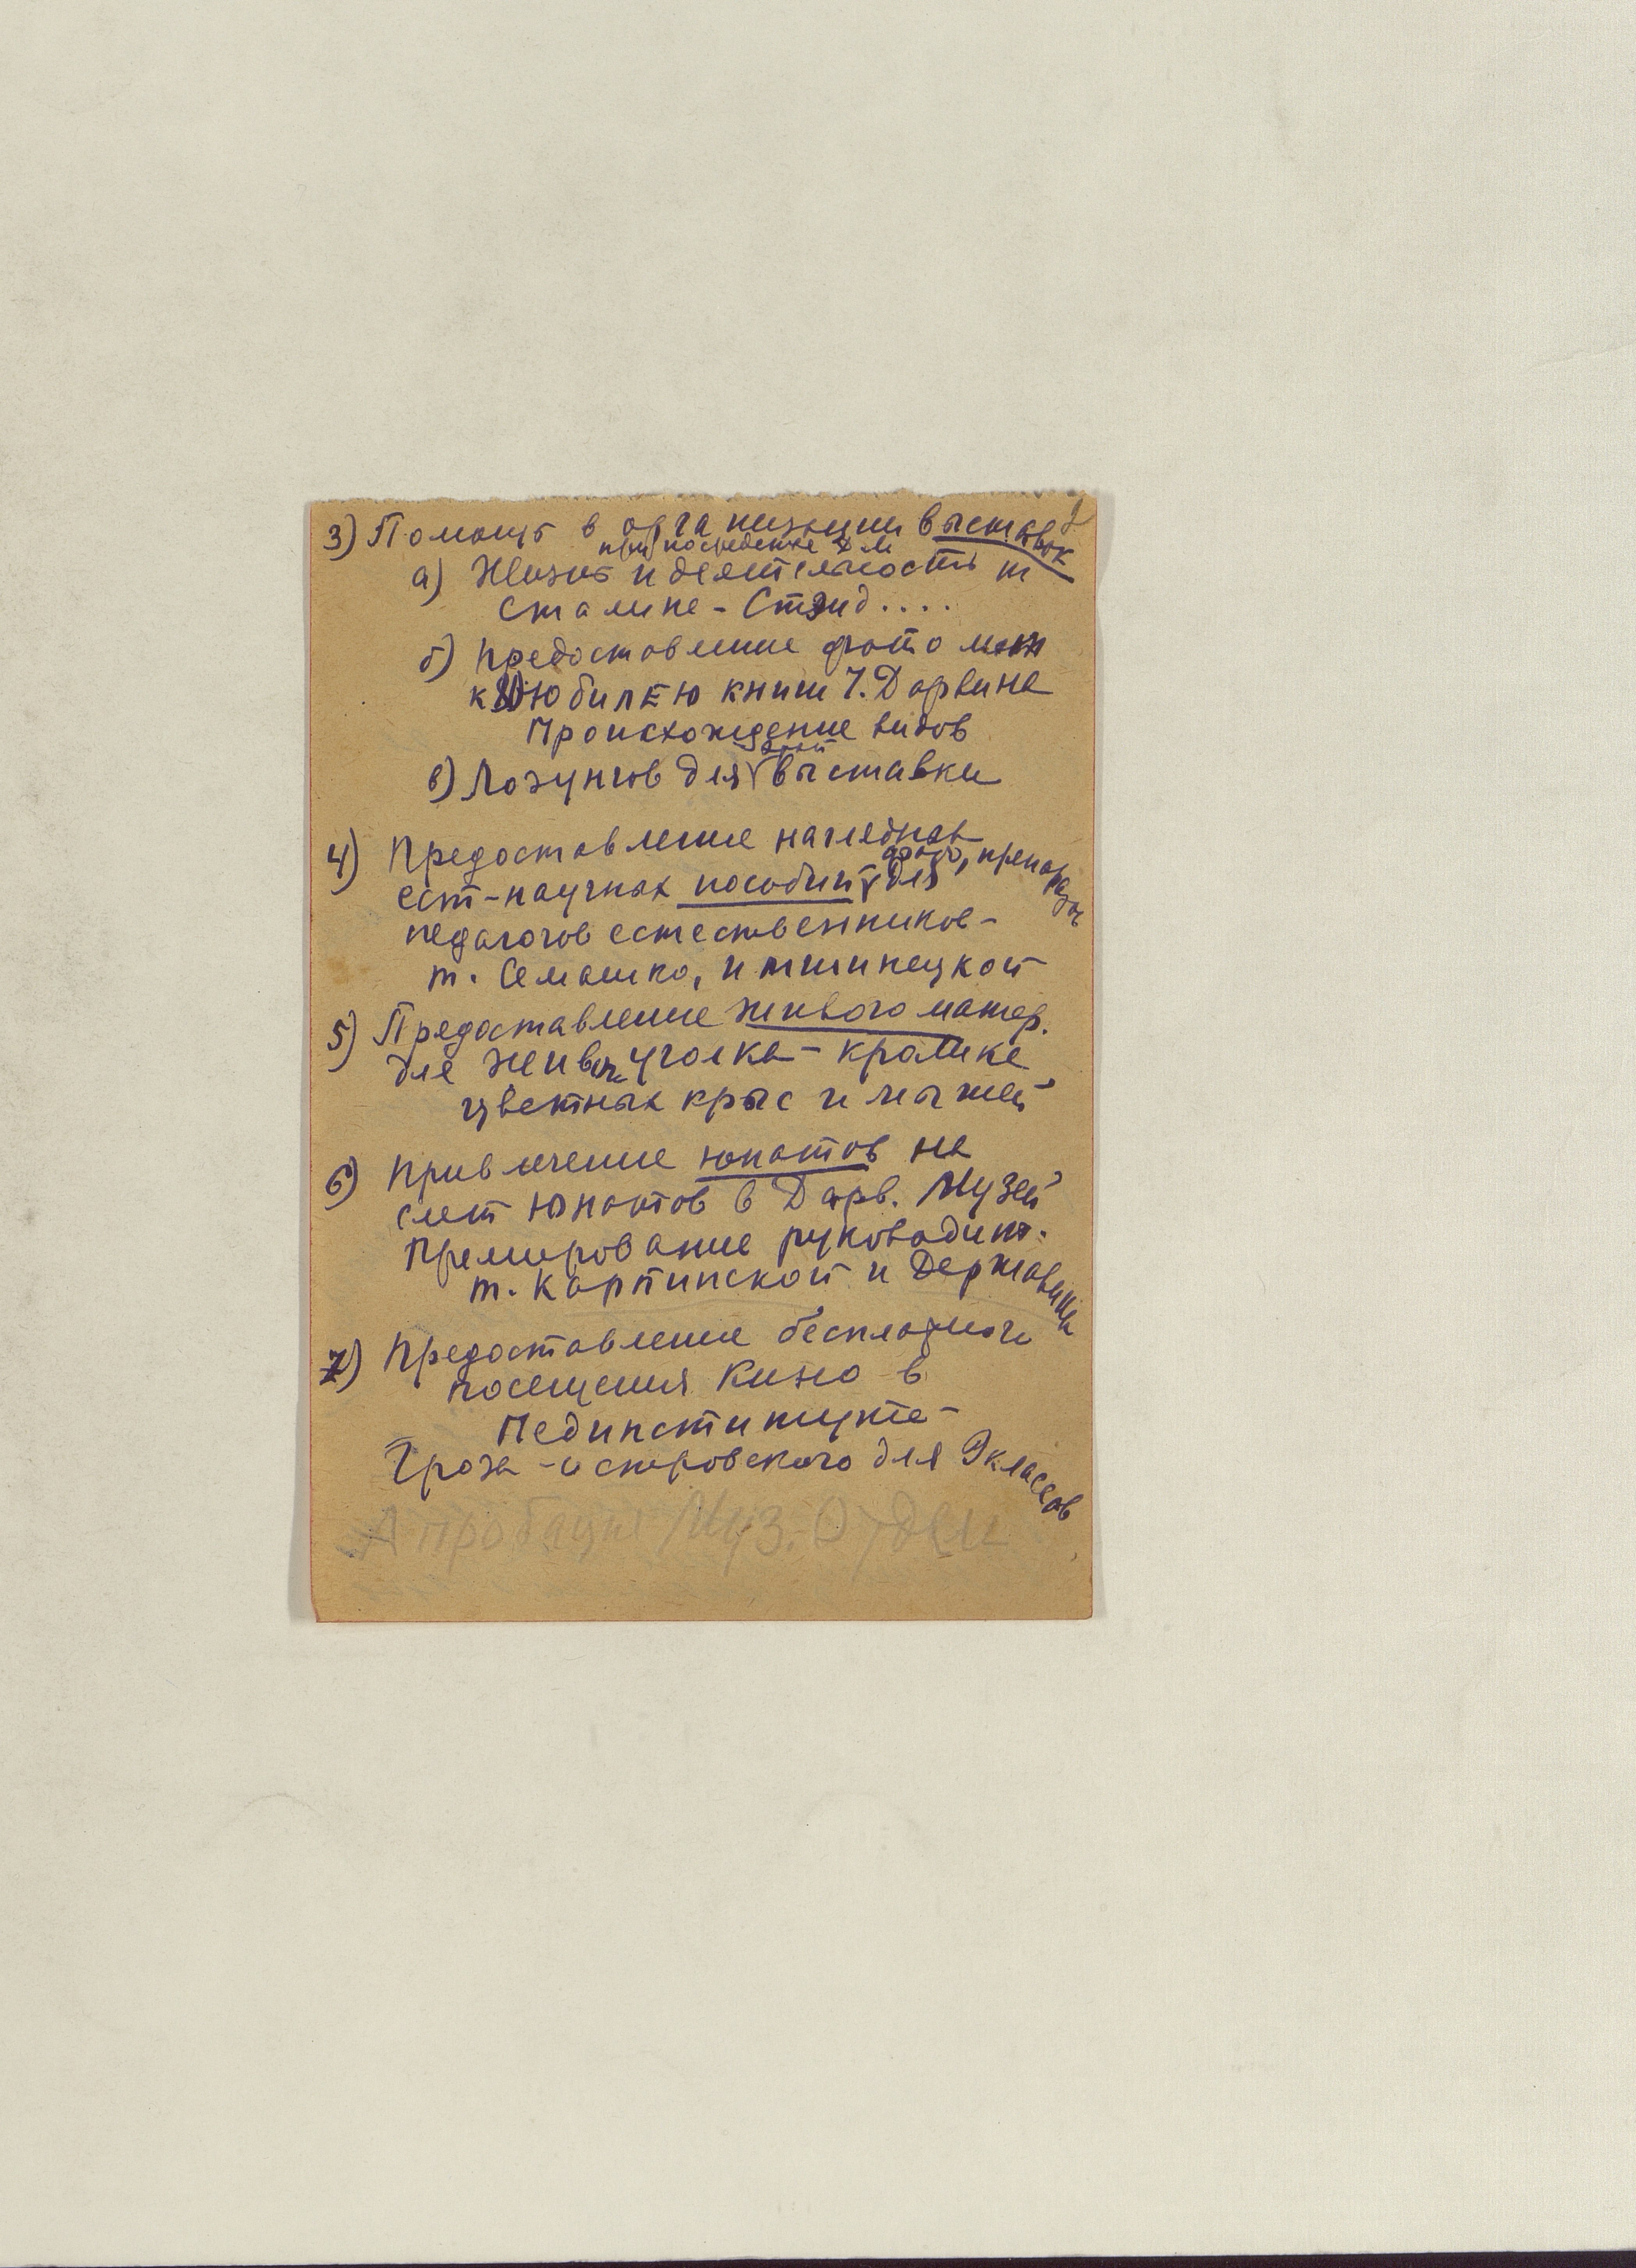 2
3) Помощь в организации выставок
при посредстве ДМ
а) Жизнь и деятельность т
Сталине - Стэнд....
б) Предоставление фото мат
к юбилею книги Ч. Дарвина
Происхождение видов
в) Лозунгов для этой выставки
4) Предоставление наглядных
ест-научных пособий, фото, препаратов для
педагогов естественников -
т. Семашко, и
5) Предоставление живого матер.
для Живого уголка - кролика
цветных крыс и мышей
6) Привлечение юнатов на
слет Юнатов в Дарв. Музей
Премирование руководит.
т. Карпинской и Державиной
7) Предоставление бесплатного
посещения Кино в
Пединституте -
Гроза - Островского для 9 классов
Апробация Муз. Отдел